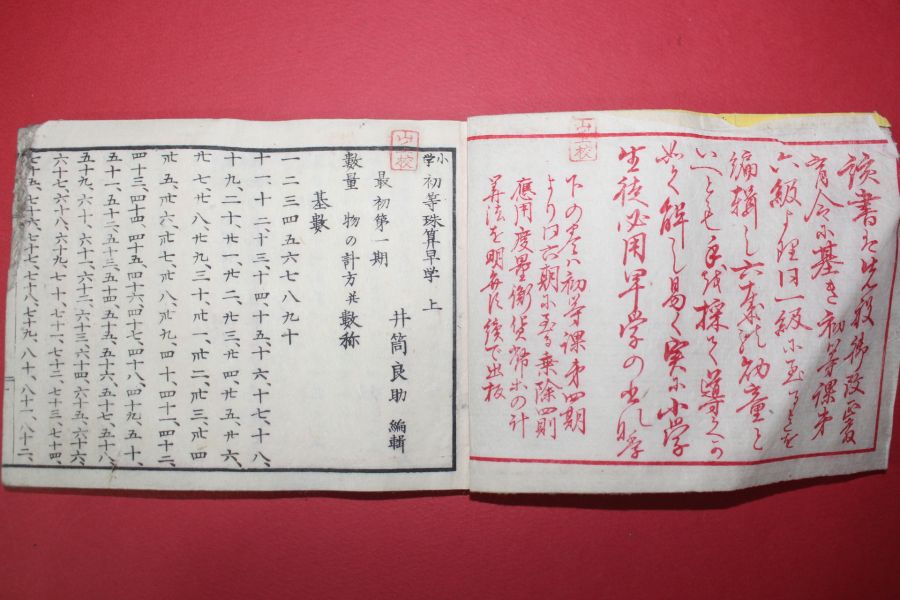 育令に基き初等課第
六級より同一級に至るまでを
編輯し六年の幼童と
いへとも手を採て導くか
如く解し易く実に小学
生徒必用早学の書なり
下の巻ハ初等課第四期
よりは六期に至る乗除四則
應用度量衡貨幣の計
算法を明続て出板
小学初等珠算早学 上
井筒良助 編輯
最初第一期
數量 物の計方并數称
基數
一二三四五六七八九十
十一、十二、十三、十四、十五、十六、十七、十八、
十九、二十、廿一、廿二、廿三、廿四、廿五、廿六、
廿七、廿八、廿九、三十、卅一、卅二、卅三、卅四
卅五、卅六、卅七、卅八、卅九、四十、四十一、四十二、
四十三、四十四、四十五、四十六、四十七、四十八、四十九、五十、
五十一、五十二、五十三、五十四、五十五、五十六、五十七、五十八、
五十九、六十、六十一、六十二、六十三、六十四、六十五、六十六、
六十七、六十八、六十九、七十、七十一、七十二、七十三、七十四、
七十五、七十六、七十七、七十八、七十九、八十、八十一、八十二、